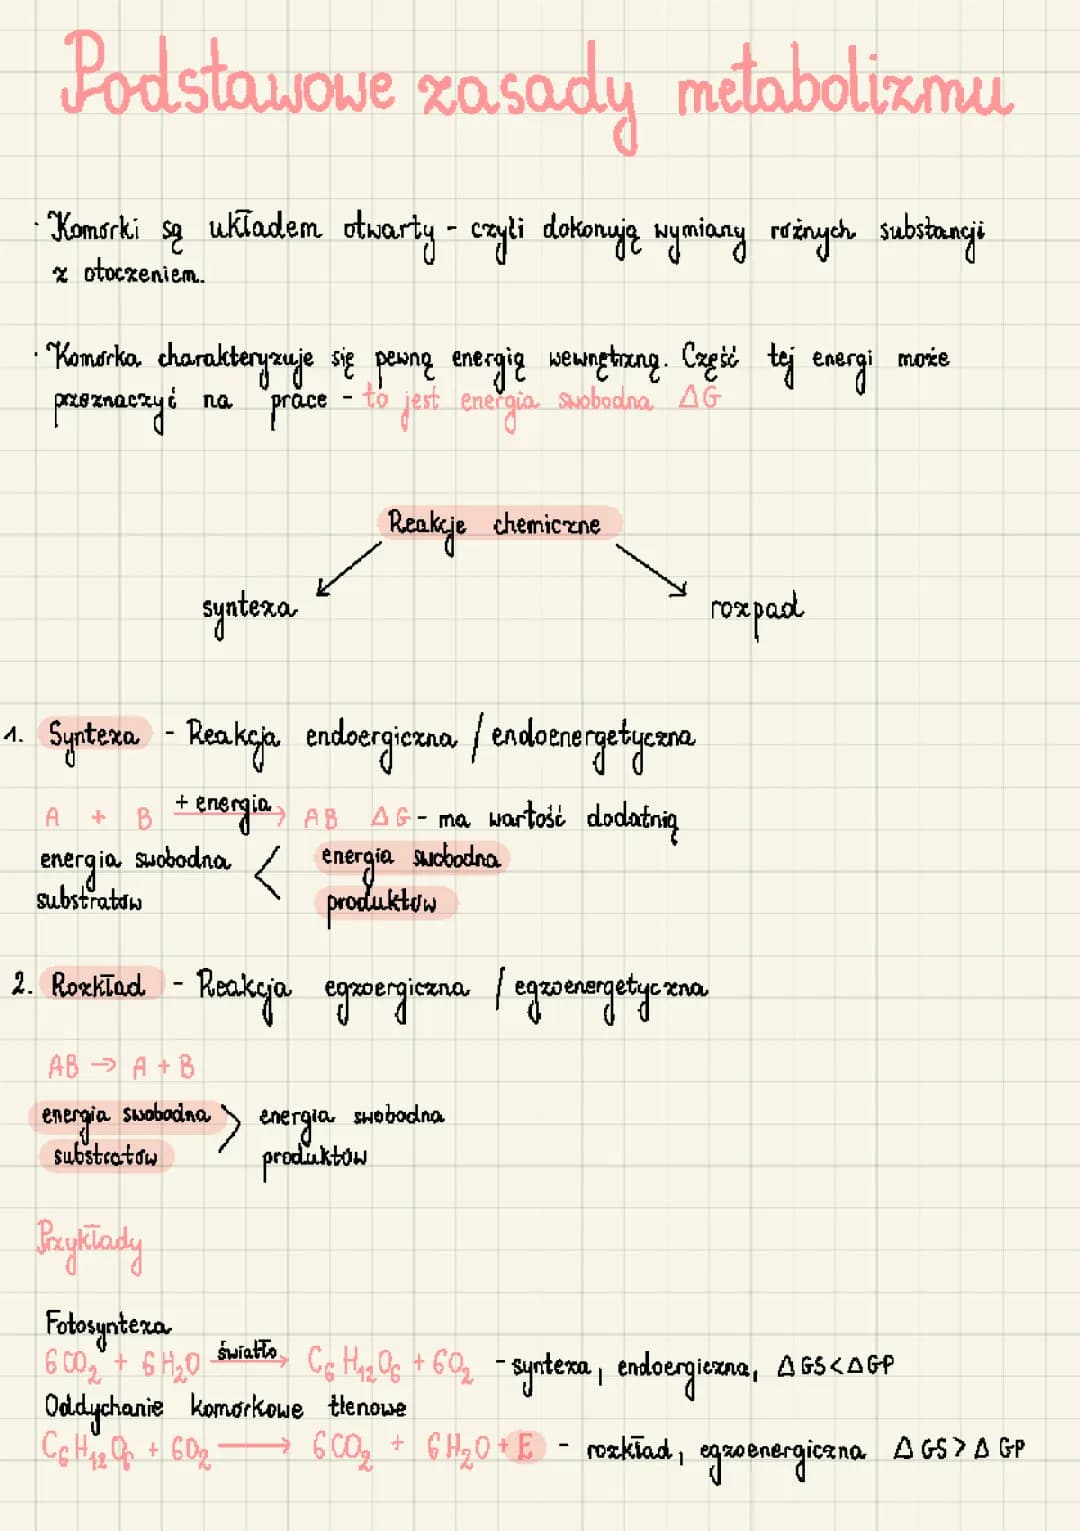 Podstawowe zasady metabolizmu
· Komórki są układem otwarty - czyli dokonują wymiany różnych substancji
z otoczeniem.
· Komórka charakteryzuje się pewną energią wewnętrzną. Część tej energi może
przeznaczyć na prace - to jest energia swobodna ΔG
Reakcje chemiczne
synteza rozpad
1. Synteza - Reakcja endoergiczna / endoenergetyczna
A + B + energia → AB ΔG - ma wartość dodatnią
energia swobodna < energia swobodna
substratów produktów
2. Rozkład - Reakcja egzoergiczna / egzoenergetyczna
AB → A + B
energia swobodna > energia swobodna
substratów produktów
Przykłady
Fotosynteza
6CO₂ + 6H₂O światło → C₆H₁₂O₆ + 6O₂ - synteza, endoergiczna, ΔGS<ΔGP
Oddychanie komórkowe tlenowe
C₆H₁₂O₆ + 6O₂ → 6CO₂ + 6H₂O + E - rozkład, egzoenergiczna ΔGS>ΔGP